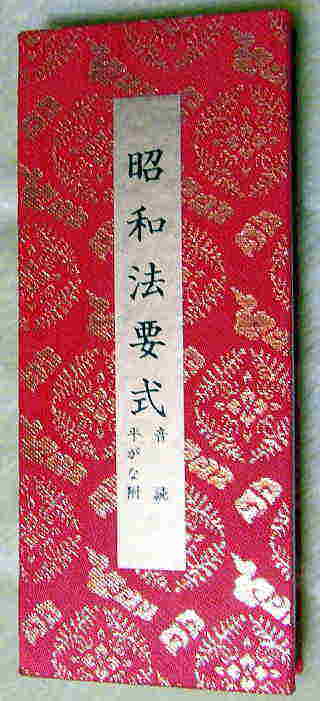 昭和法要式
音読
平がな附